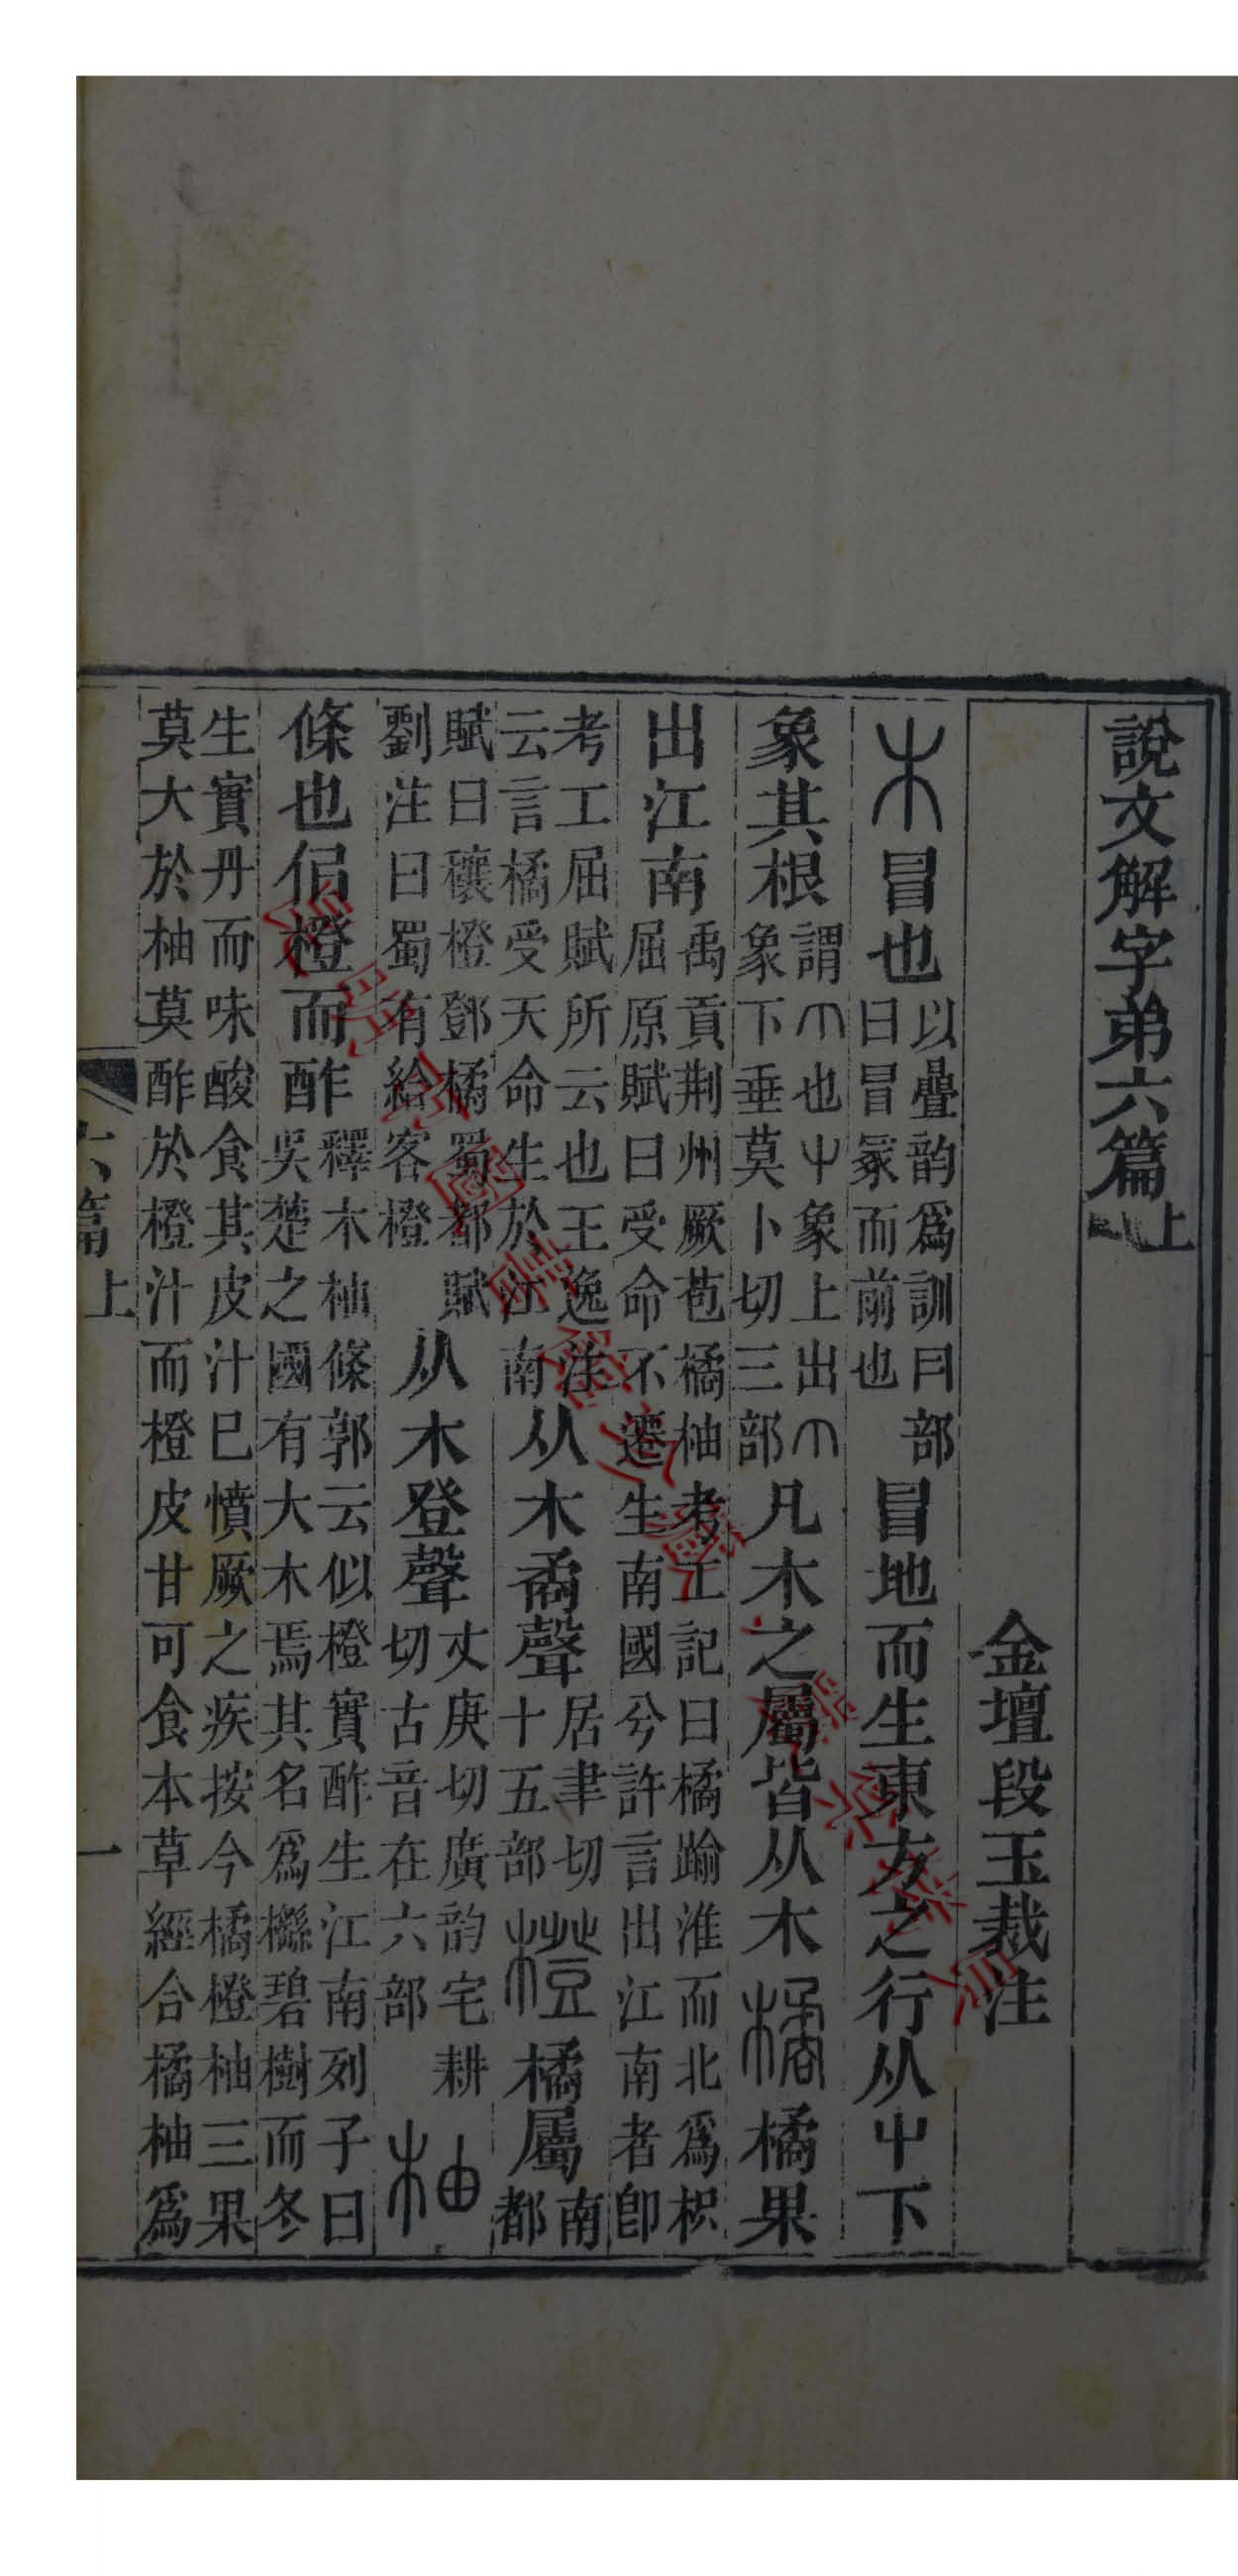 說文解字弟六篇上
金壇段玉裁注
木冒也以疊韵爲訓曰部曰冒冡而前也冒地而生東方之行从屮下
象其根謂𠆢也屮象上出𠆢象下垂莫卜切三部凡木之屬皆从木橘橘果
出江南禹貢荆州厥苞橘柚考工記曰橘踰淮而北爲枳屈原賦曰受命不遷生南國兮許言出江南者卽
考工屈賦所云也王逸注云言橘受天命生於江南从木矞聲居聿切十五部橙橘屬南都
賦曰穰橙鄧橘蜀都賦劉注曰蜀有給客橙从木登聲丈庚切廣韵宅耕切古音在六部柚
條也佀橙而酢釋木柚條郭云似橙實酢生江南列子曰吳楚之國有大木焉其名爲櫾碧樹而冬
生實丹而味酸食其皮汁已憤厥之疾按今橘橙柚三果莫大於柚莫酢於橙汁而橙皮甘可食本草經合橘柚爲
六篇上
一